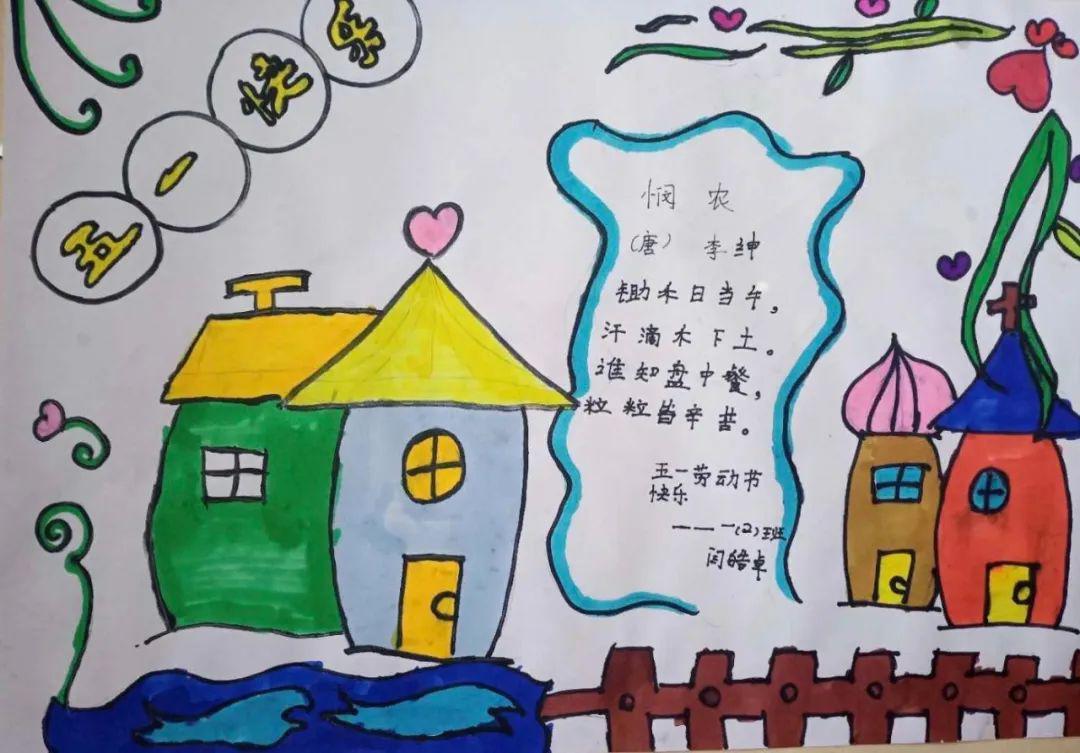 五一快乐
悯 农
(唐) 李绅
锄禾日当午，
汗滴禾下土。
谁知盘中餐，
粒粒皆辛苦。
五一劳动节
快乐
——一(2)班
闫皓卓